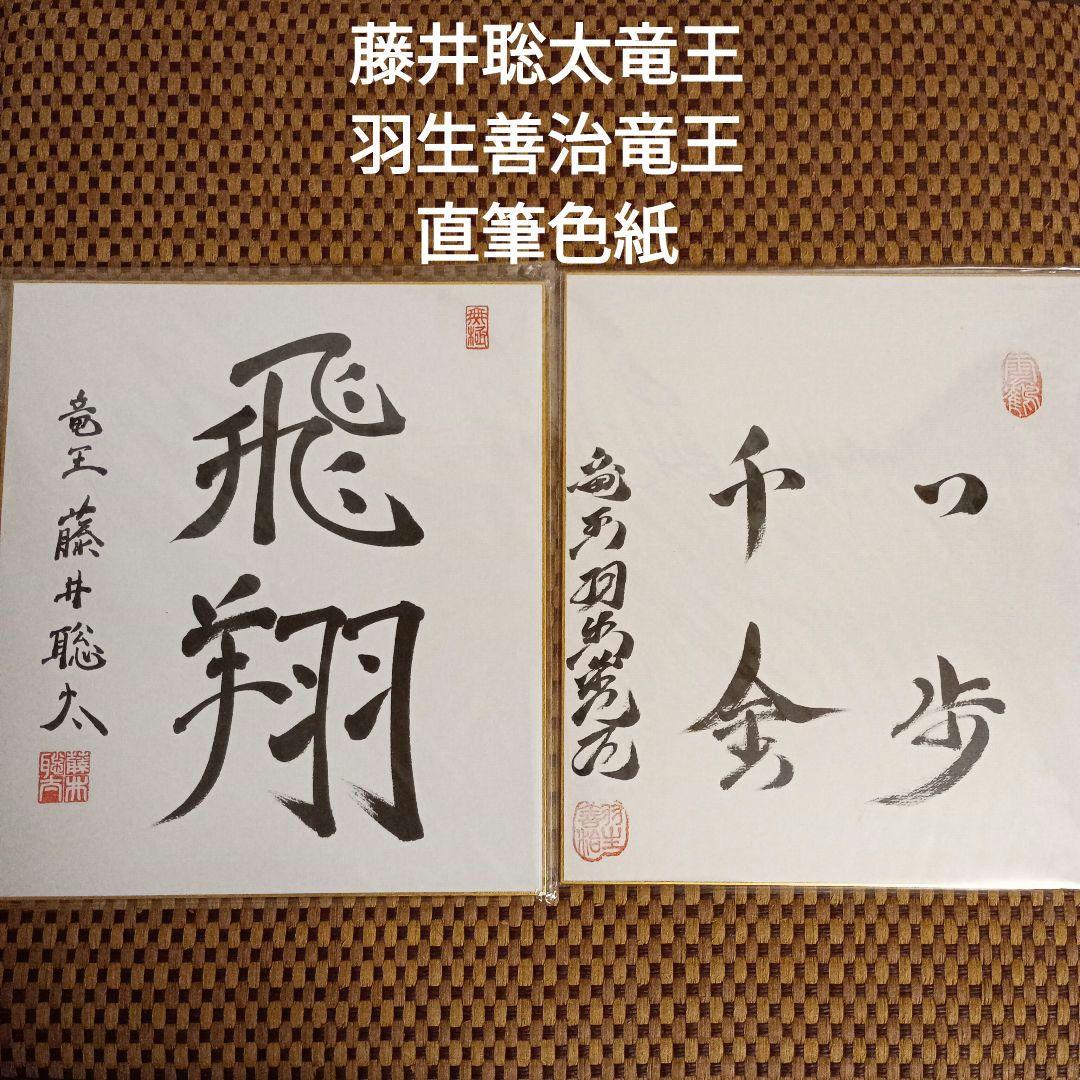 藤井聡太竜王
羽生善治竜王
直筆色紙
飛翔
竜王 藤井聡太
藤井聡太
一歩
千金
竜王羽生善治
羽生善治